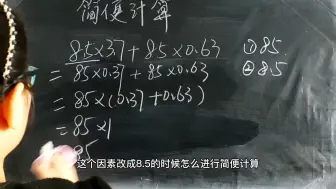 简便计算
85×37+85×0.63 ①85.
=85×0.37+85×0.63 ②8.5
=85×(0.37+0.63)
=85×1
85
这个因素改成8.5的时候怎么进行简便计算